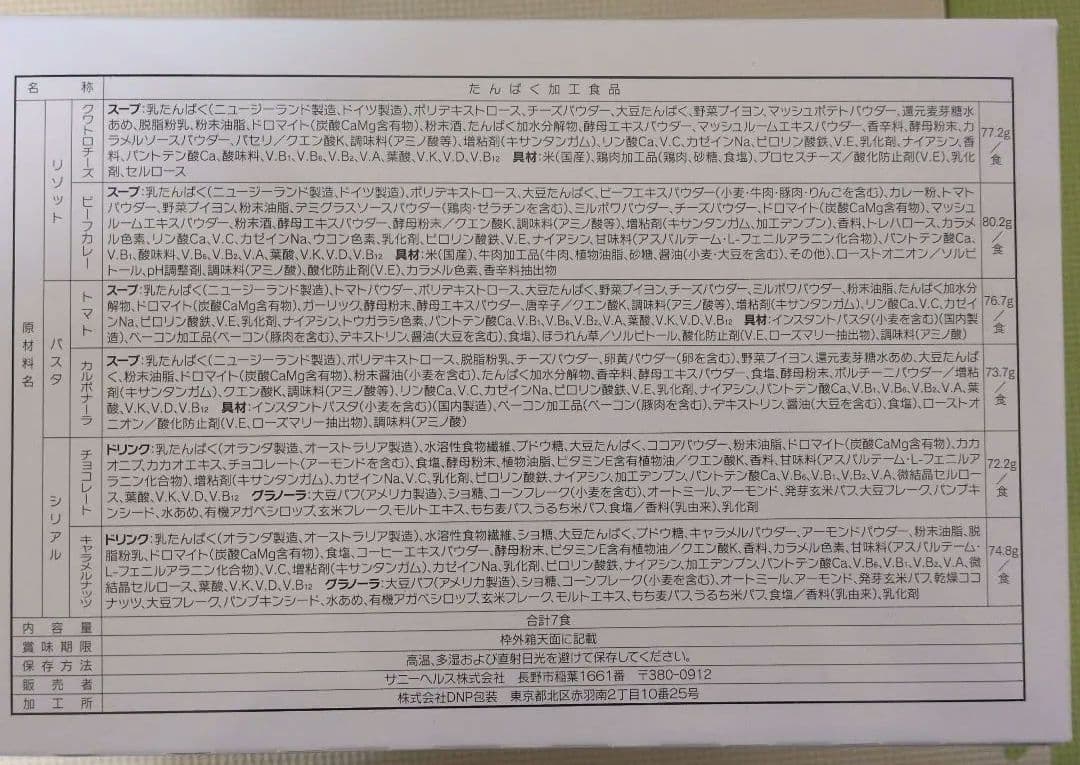 名称 たんぱく加工食品
原材料名
リゾット
クワトロチーズ
スープ:乳たんぱく(ニュージーランド製造、ドイツ製造)、ポリデキストロース、チーズパウダー、大豆たんぱく、野菜ブイヨン、マッシュポテトパウダー、還元麦芽糖水
あめ、脱脂粉乳、粉末油脂、ドロマイト(炭酸CaMg含有物)、粉末酒、たんぱく加水分解物、酵母エキスパウダー、マッシュルームエキスパウダー、香辛料、酵母粉末、カ
ラメルソースパウダー、パセリ/クエン酸K、調味料(アミノ酸等)、増粘剤(キサンタンガム)、リン酸Ca、V.C、カゼインNa、ピロリン酸鉄、V.E、乳化剤、ナイアシン、香
料、パントテン酸Ca、酸味料、V.B1、V.B6、V.B2、V.A、葉酸、V.K、V.D、V.B12 具材:米(国産)、鶏肉加工品(鶏肉、砂糖、食塩)、プロセスチーズ/酸化防止剤(V.E)、乳化
剤、セルロース
77.2g/食
ビーフカレー
スープ:乳たんぱく(ニュージーランド製造、ドイツ製造)、ポリデキストロース、大豆たんぱく、ビーフエキスパウダー(小麦・牛肉・豚肉・りんごを含む)、カレー粉、トマト
パウダー、野菜ブイヨン、粉末油脂、デミグラスソースパウダー(鶏肉・ゼラチンを含む)、ミルポワパウダー、チーズパウダー、ドロマイト(炭酸CaMg含有物)、マッシュ
ルームエキスパウダー、粉末酒、酵母エキスパウダー、酵母粉末/クエン酸K、調味料(アミノ酸等)、増粘剤(キサンタンガム、加工デンプン)、香料、トレハロース、カラメ
ル色素、リン酸Ca、V.C、カゼインNa、ウコン色素、乳化剤、ピロリン酸鉄、V.E、ナイアシン、甘味料(アスパルテーム・L-フェニルアラニン化合物)、パントテン酸Ca、
V.B1、酸味料、V.B6、V.B2、V.A、葉酸、V.K、V.D、V.B12 具材:米(国産)、牛肉加工品(牛肉、植物油脂、砂糖、醤油(小麦・大豆を含む)、その他)、ローストオニオン/ソルビ
トール、pH調整剤、調味料(アミノ酸)、酸化防止剤(V.E)、カラメル色素、香辛料抽出物
80.2g/食
パスタ
トマト
スープ:乳たんぱく(ニュージーランド製造)、トマトパウダー、ポリデキストロース、大豆たんぱく、野菜ブイヨン、チーズパウダー、ミルポワパウダー、粉末油脂、たんぱく加水分
解物、ドロマイト(炭酸CaMg含有物)、ガーリック、酵母粉末、酵母エキスパウダー、唐辛子/クエン酸K、調味料(アミノ酸等)、増粘剤(キサンタンガム)、リン酸Ca、V.C、カゼイ
ンNa、ピロリン酸鉄、V.E、乳化剤、ナイアシン、トウガラシ色素、パントテン酸Ca、V.B1、V.B6、V.B2、V.A、葉酸、V.K、V.D、V.B12 具材:インスタントパスタ(小麦を含む)(国内製
造)、ベーコン加工品(ベーコン(豚肉を含む)、デキストリン、醤油(大豆を含む)、食塩)、ほうれん草/ソルビトール、酸化防止剤(V.E、ローズマリー抽出物)、調味料(アミノ酸)
76.7g/食
カルボナーラ
スープ:乳たんぱく(ニュージーランド製造)、ポリデキストロース、脱脂粉乳、チーズパウダー、卵黄パウダー(卵を含む)、野菜ブイヨン、還元麦芽糖水あめ、大豆たんぱ
く、粉末油脂、ドロマイト(炭酸CaMg含有物)、粉末醤油(小麦を含む)、たんぱく加水分解物、香辛料、酵母エキスパウダー、食塩、酵母粉末、ポルチーニパウダー/増粘
剤(キサンタンガム)、クエン酸K、調味料(アミノ酸等)、リン酸Ca、V.C、カゼインNa、ピロリン酸鉄、V.E、乳化剤、ナイアシン、パントテン酸Ca、V.B1、V.B6、V.B2、V.A、葉
酸、V.K、V.D、V.B12 具材:インスタントパスタ(小麦を含む)(国内製造)、ベーコン加工品(ベーコン(豚肉を含む)、デキストリン、醤油(大豆を含む)、食塩)、ローストオ
ニオン/酸化防止剤(V.E、ローズマリー抽出物)、調味料(アミノ酸)
73.7g/食
シリアル
チョコレート
ドリンク:乳たんぱく(オランダ製造、オーストラリア製造)、水溶性食物繊維、ブドウ糖、大豆たんぱく、ココアパウダー、粉末油脂、ドロマイト(炭酸CaMg含有物)、カカ
オニブ、カカオエキス、チョコレート(アーモンドを含む)、食塩、酵母粉末、植物油脂、ビタミンE含有植物油/クエン酸K、香料、甘味料(アスパルテーム・L-フェニルア
ラニン化合物)、増粘剤(キサンタンガム)、カゼインNa、V.C、乳化剤、ピロリン酸鉄、ナイアシン、加工デンプン、パントテン酸Ca、V.B6、V.B1、V.B2、V.A、微結晶セルロー
ス、葉酸、V.K、V.D、V.B12 グラノーラ:大豆パフ(アメリカ製造)、ショ糖、コーンフレーク(小麦を含む)、オートミール、アーモンド、発芽玄米パフ、大豆フレーク、パンプキ
ンシード、水あめ、有機アガベシロップ、玄米フレーク、モルトエキス、もち麦パフ、うるち米パフ、食塩/香料(乳由来)、乳化剤
72.2g/食
キャラメルナッツ
ドリンク:乳たんぱく(オランダ製造、オーストラリア製造)、水溶性食物繊維、ショ糖、大豆たんぱく、ブドウ糖、キャラメルパウダー、アーモンドパウダー、粉末油脂、脱
脂粉乳、ドロマイト(炭酸CaMg含有物)、食塩、コーヒーエキスパウダー、酵母粉末、ビタミンE含有植物油/クエン酸K、香料、カラメル色素、甘味料(アスパルテーム・
L-フェニルアラニン化合物)、V.C、増粘剤(キサンタンガム)、カゼインNa、乳化剤、ピロリン酸鉄、ナイアシン、加工デンプン、パントテン酸Ca、V.B6、V.B1、V.B2、V.A、微
結晶セルロース、葉酸、V.K、V.D、V.B12 グラノーラ:大豆パフ(アメリカ製造)、ショ糖、コーンフレーク(小麦を含む)、オートミール、アーモンド、発芽玄米パフ、乾燥ココ
ナッツ、大豆フレーク、パンプキンシード、水あめ、有機アガベシロップ、玄米フレーク、モルトエキス、もち麦パフ、うるち米パフ、食塩/香料(乳由来)、乳化剤
74.8g/食
内容量 合計7食
賞味期限 枠外箱天面に記載
保存方法 高温、多湿および直射日光を避けて保存してください。
販売者 サニーヘルス株式会社 長野市稲葉1661番 〒380-0912
加工所 株式会社DNP包装 東京都北区赤羽南2丁目10番25号